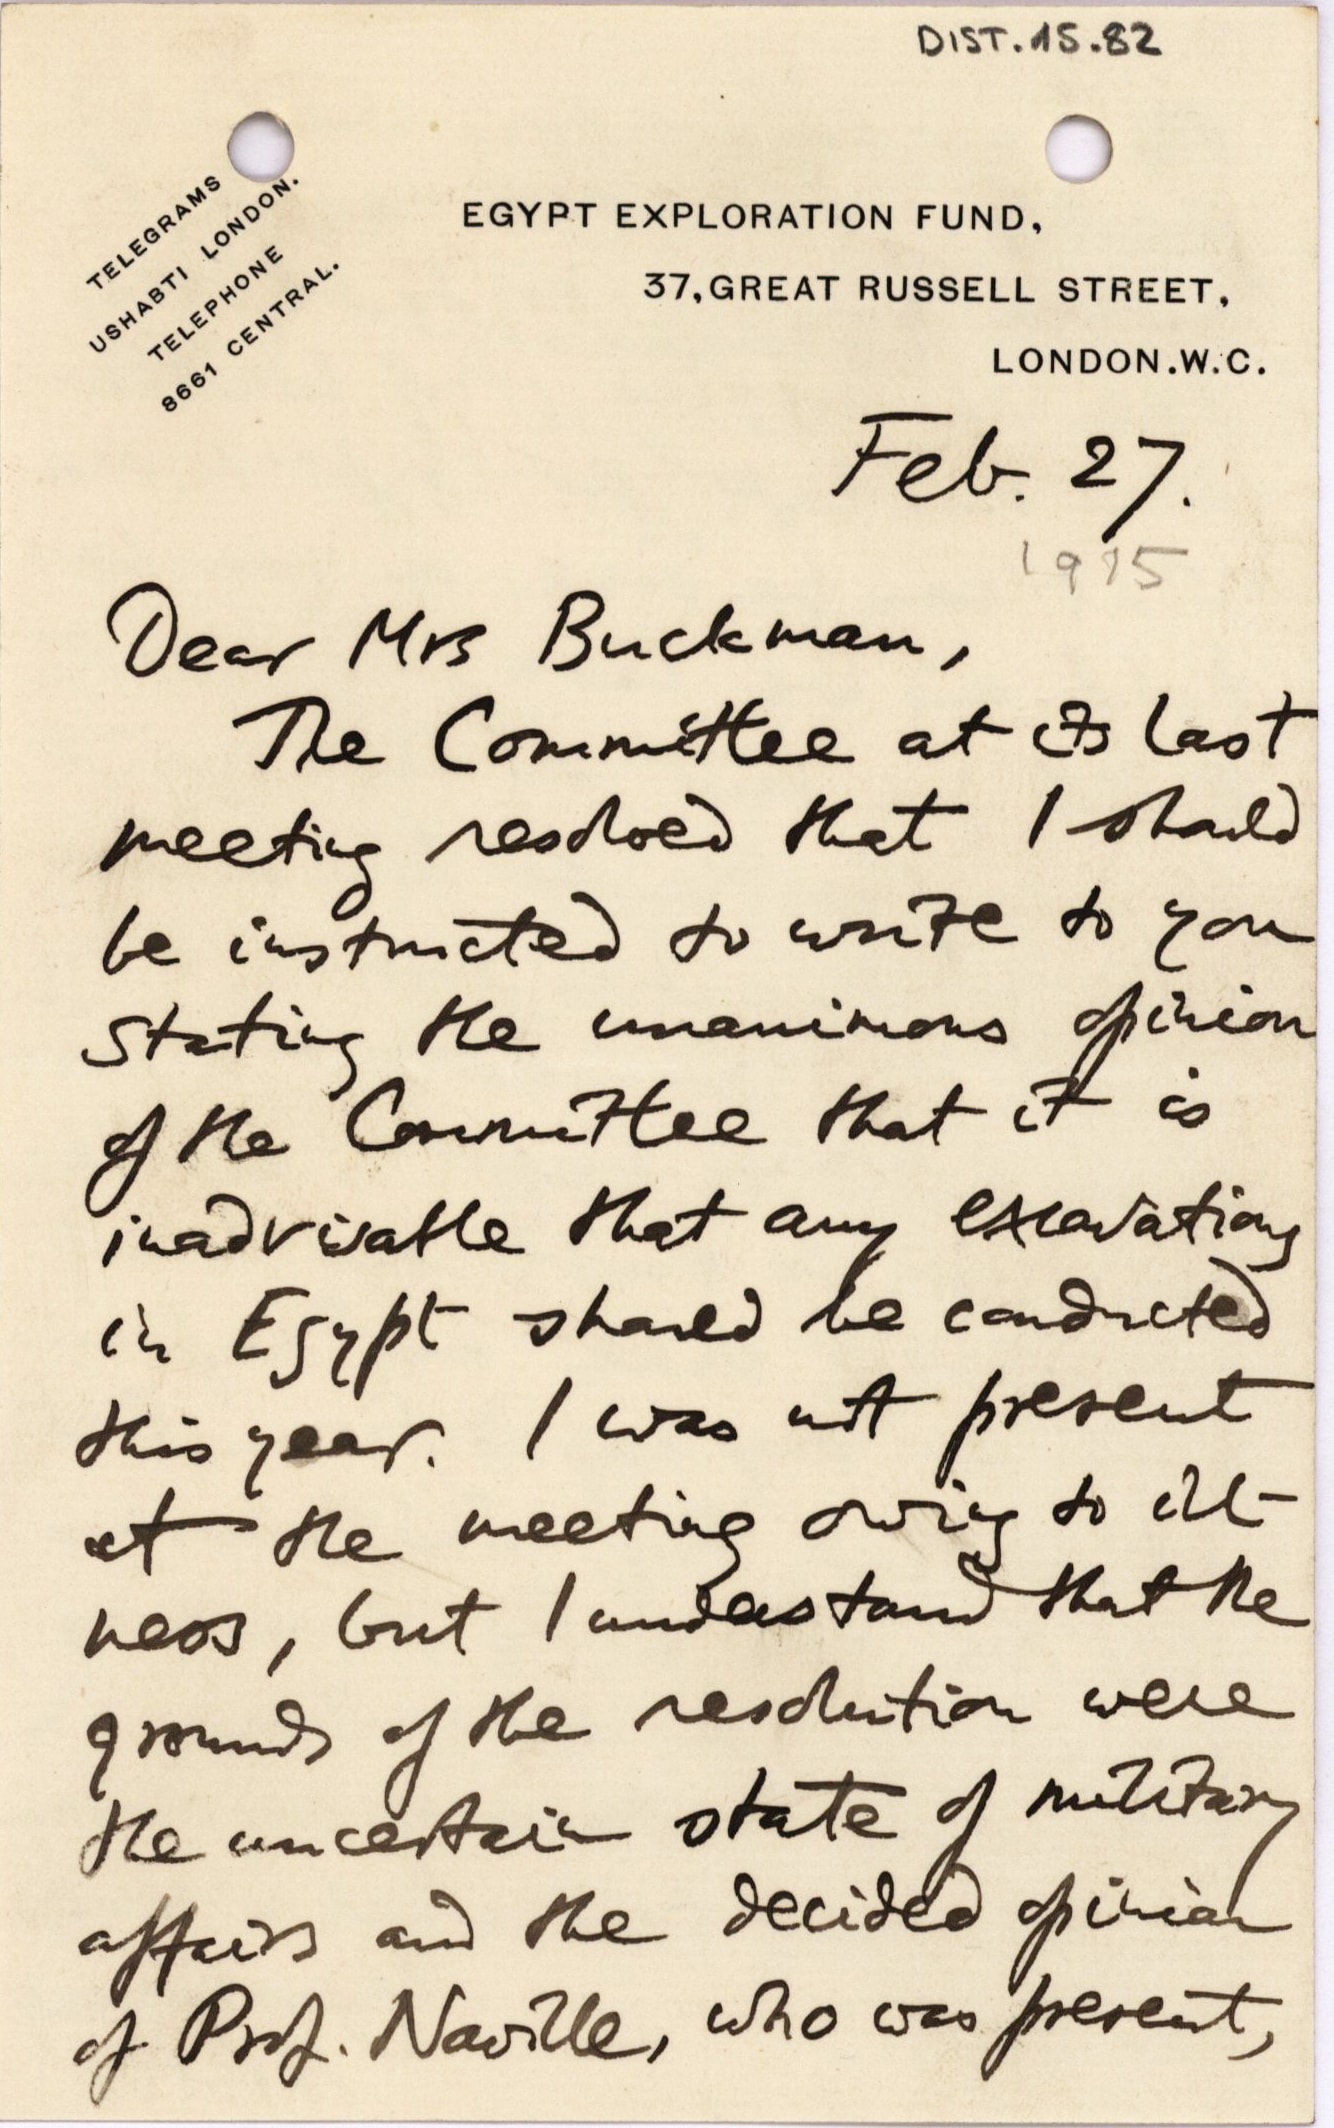 DIST.15.82
TELEGRAMS
USHABTI LONDON.
TELEPHONE
8661 CENTRAL.
EGYPT EXPLORATION FUND,
37, GREAT RUSSELL STREET,
LONDON.W.C.
Feb. 27.
1915
Dear Mrs Buckman,
The Committee at its last
meeting resolved that I should
be instructed to write to you
stating the unanimous opinion
of the Committee that it is
inadvisable that any excavations
in Egypt should be conducted
this year. I was not present
at the meeting owing to ill-
ness, but I understand that the
grounds of the resolution were
the uncertain state of military
affairs and the decided opinion
of Prof. Naville, who was present,